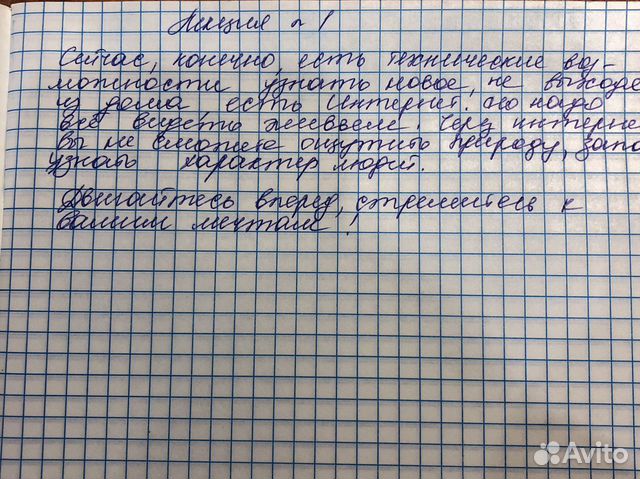 Лекция № 1
Сейчас, конечно, есть технические воз-
можности узнать новое, не выходя
из дома есть Интернет. Но надо
всё видеть живьём. Через интерне
Вы не сможете ощутить природу, запа
узнать характер людей.
Двигайтесь вперед, стремитесь к
вашим мечтам!
Avito